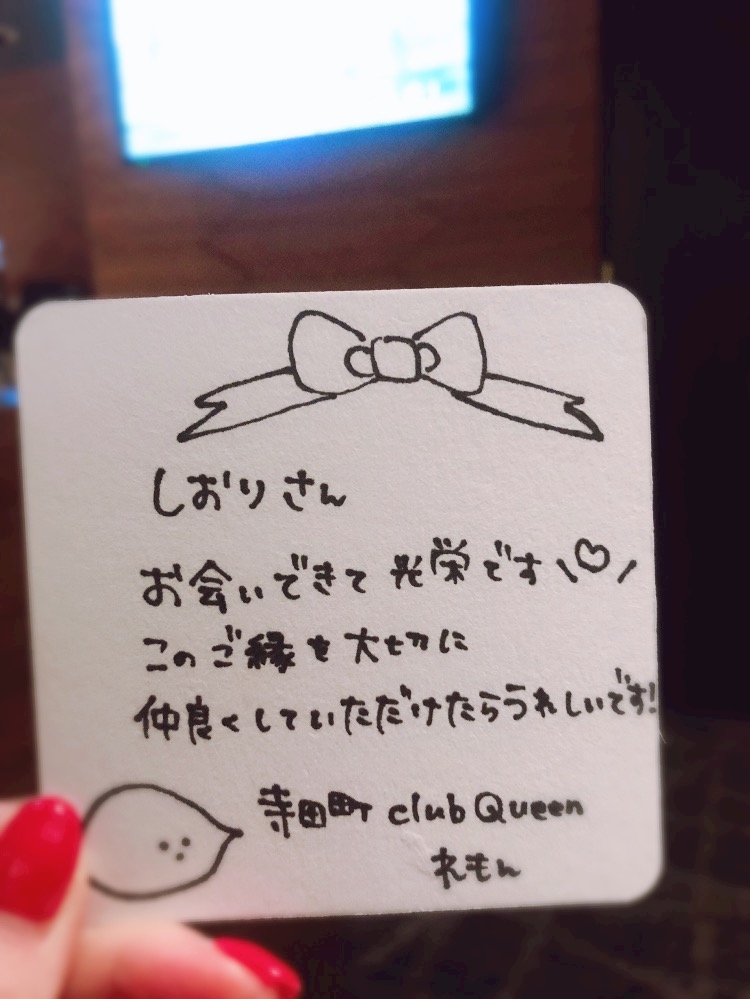 しおりさん
お会いできて光栄です\♡/
このご縁を大切に
仲良くしていただけたらうれしいです!
寺田町 club Queen
れもん